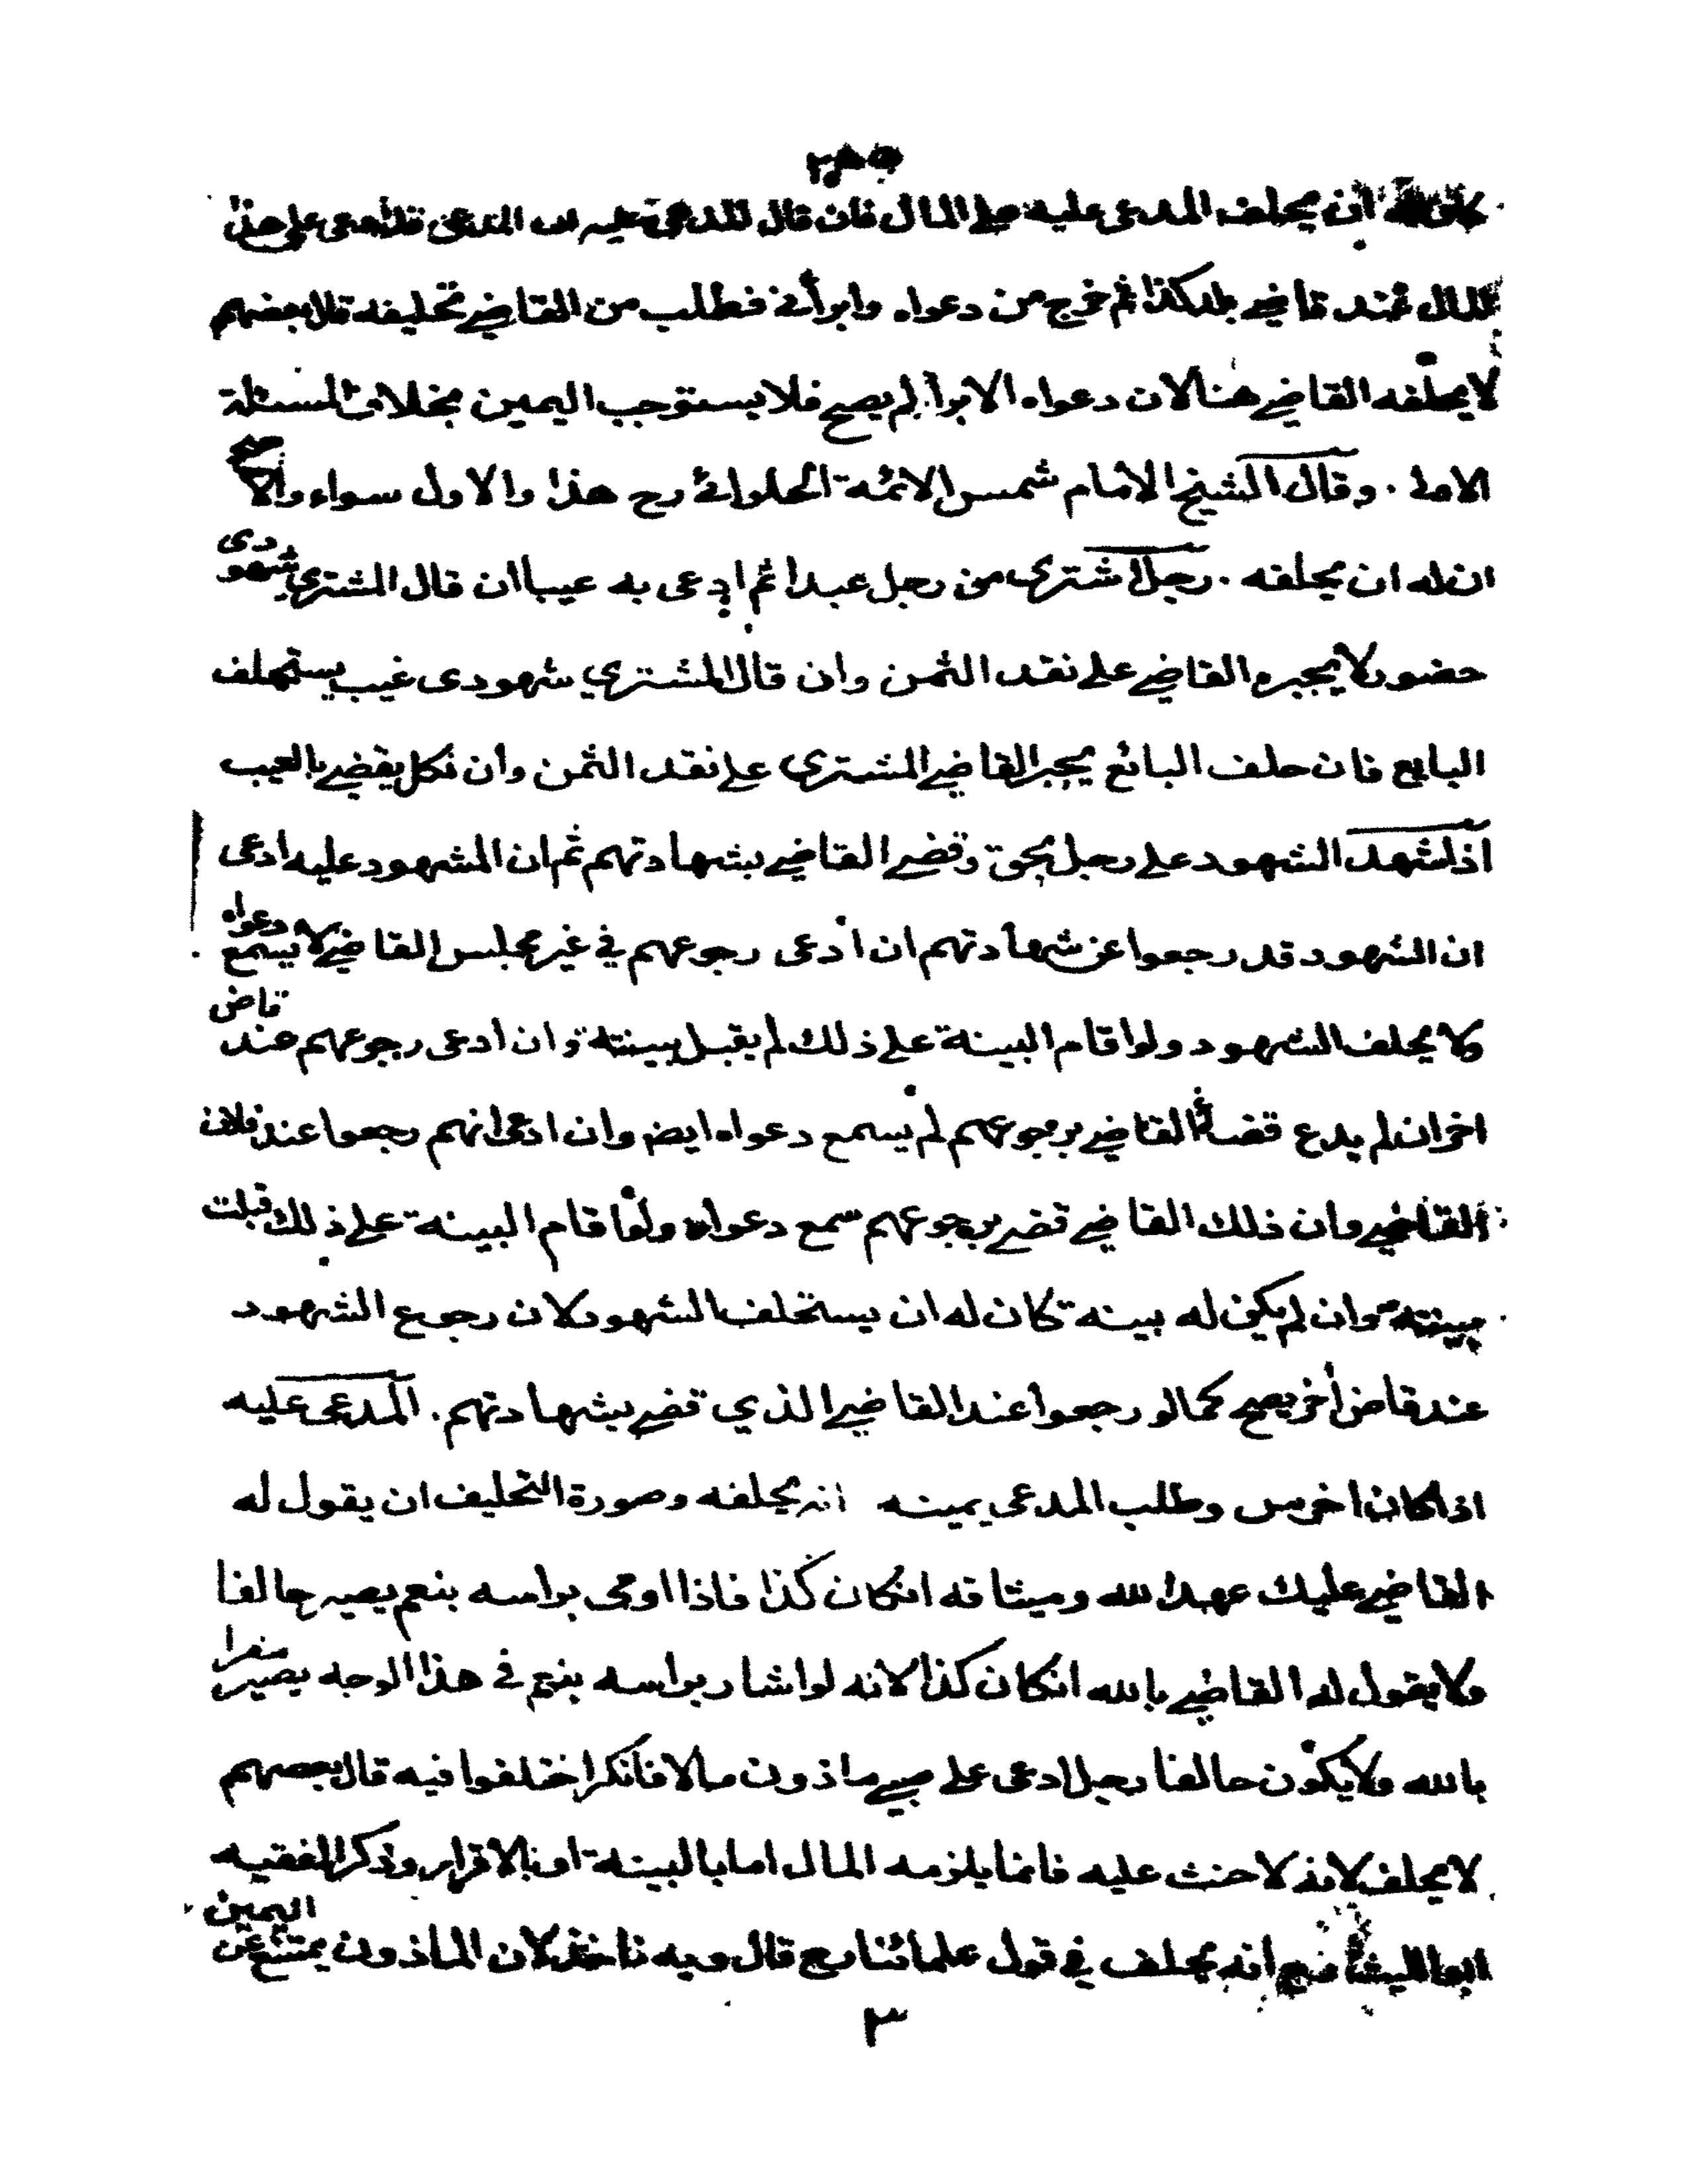 كان له أن يحلف المدعى عليه على المال فان قال المدعى عليه ان المدعى قد ادعى على هذا
المال عند قاضي بلد كذا ثم خرج من دعواه وابرأني فطلب من القاضي تحليفه قال بعضهم
لا يحلفه القاضي هنا لان دعواه الابرأ لم يصح فلا يستوجب اليمين بخلاف المسئلة
الاولى . وقال الشيخ الامام شمس الائمة الحلوائي رح هذا والاول سواء والاصح
ان له ان يحلفه . رجل اشترى من رجل عبدا ثم ادعى به عيبا ان قال المشتري شهودى
حضور لا يجبره القاضي على نقد الثمن وان قال المشتري شهودى غيب يستحلف
البايع فان حلف البائع يجبر القاضي المشتري على نقد الثمن وان نكل يقضي بالعيب
اذا شهد الشهود على رجل بحق وقضى القاضي بشهادتهم ثم ان المشهود عليه ادعى
ان الشهود قد رجعوا عن شهادتهم ان ادعى رجوعهم في غير مجلس القاضي لا يسمع دعواه
ولا يحلف الشهود ولو اقام البينة على ذلك لم يقبل بينته وان ادعى رجوعهم عند قاض
اخر ان لم يدع قضاء القاضي برجوعهم لم يسمع دعواه ايض وان ادعى انهم رجعوا عند فلان
القاضي وان ذلك القاضي قضى برجوعهم سمع دعواه ولو اقام البينة على ذلك قبلت
بينته وان لم يكن له بينة كان له ان يستحلف الشهود لان رجوع الشهود
عند قاض أخر يصح كما لو رجعوا عند القاضي الذي قضى بشهادتهم . المدعى عليه
اذا كان اخرس وطلب المدعى يمينه انه يحلفه وصورة التحليف ان يقول له
القاضي عليك عهد الله وميثاقه ان كان كذا فاذا اومى براسه بنعم يصير حالفا
ولا يقول له القاضي بالله ان كان كذا لانه لو اشار براسه بنعم في هذا الوجه يصير مقرا
بالله ولا يكون حالفا رجل ادعى على صبي ماذون مالا فانكر اختلفوا فيه قال بعضهم
لا يحلف لانه لا حنث عليه فانما يلزمه المال اما بالبينة او بالاقرار وذكر الفقيه
ابو الليث انه يحلف في قول علمائنا رح قال وبه ناخذ لان الماذون يمتنع عن اليمين
٣